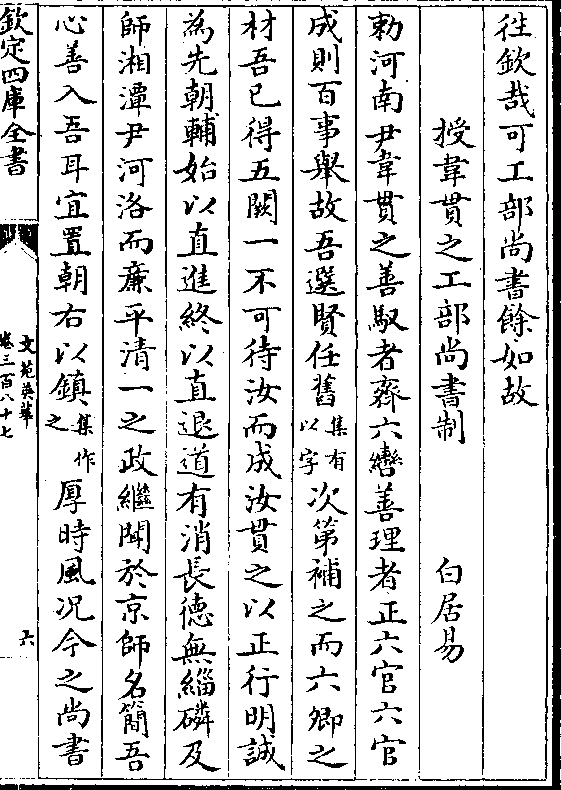 往欽哉可工部尚書餘如故
授韋貫之工部尚書制 白居易
勅河南尹韋貫之善馭者齊六轡善理者正六官六官
成則百事舉故吾選賢任舊集有以字次第補之而六卿之
材吾已得五闕一不可待汝而成汝貫之以正行明誠
為先朝輔始以直進終以直退道有消長德無緇磷及
師湘潭尹河洛而廉平清一之政繼聞於京師名簡吾
心善入吾耳宜置朝右以鎮集作之厚時風况今之尚書
欽定四庫全書
文苑英華
卷三百八十七
六